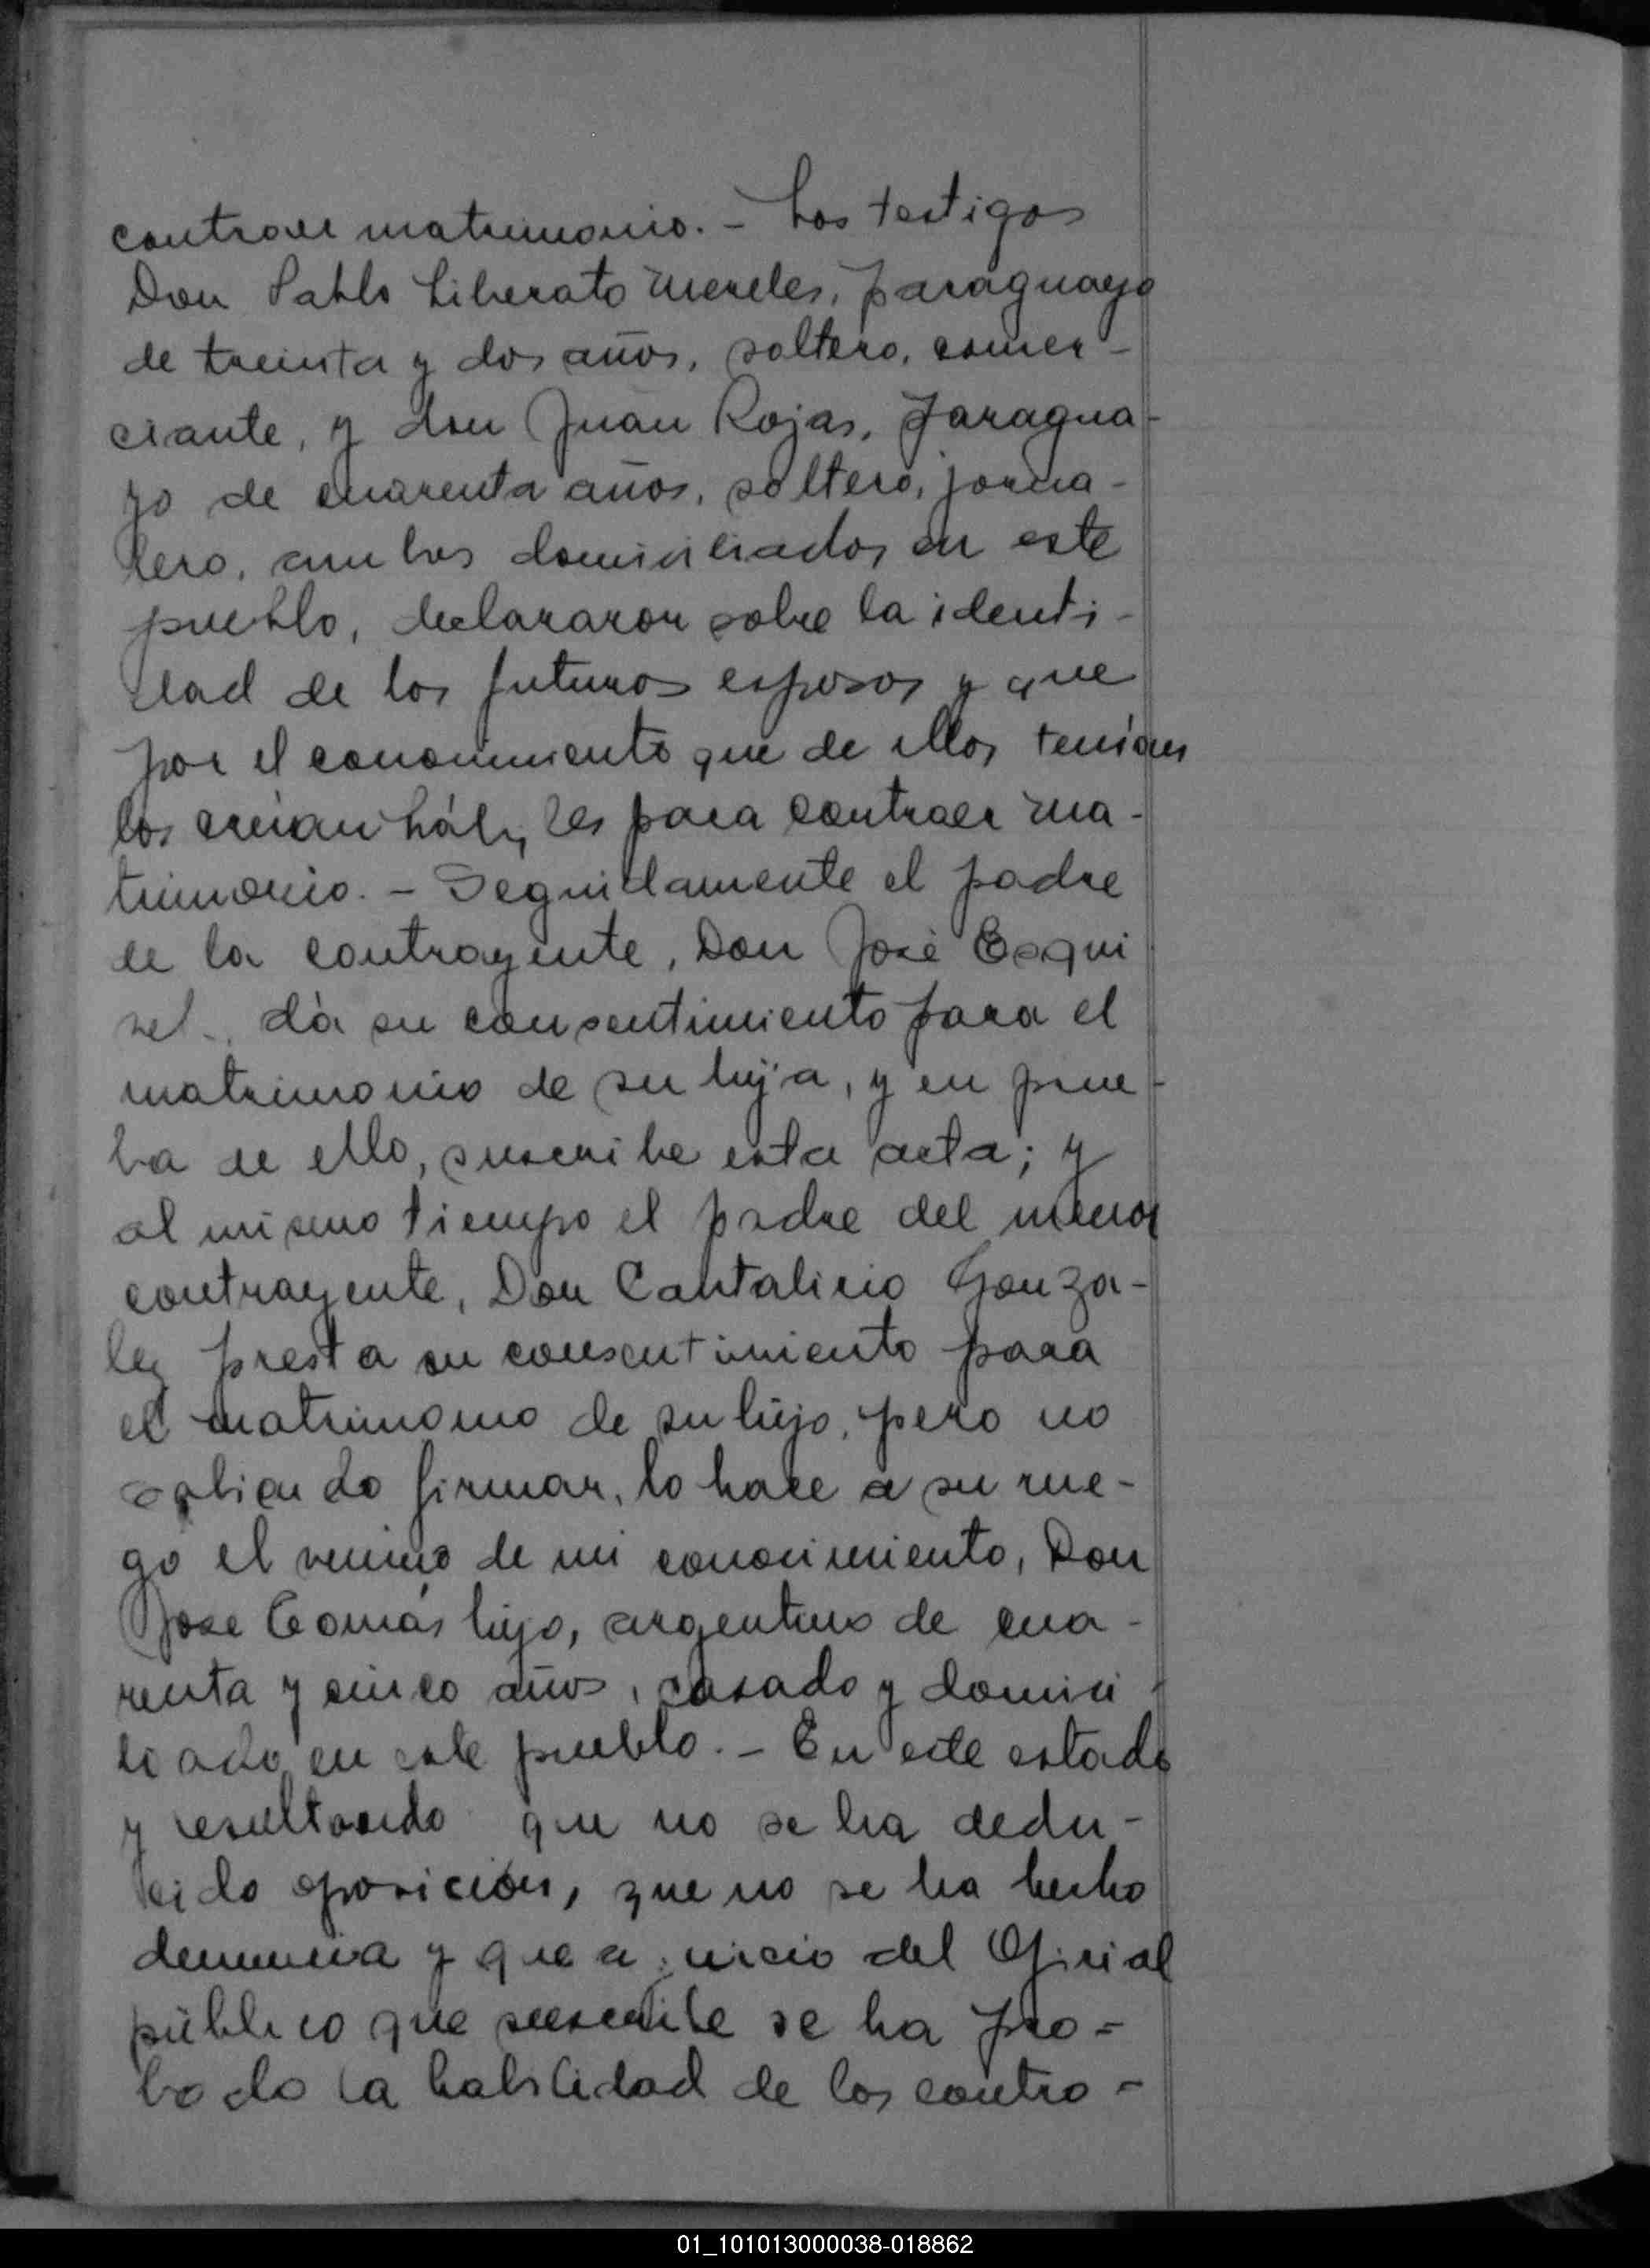 contraer matrimonio. - Los testigos
Don Pablo Liberato Mereles, paraguayo
de treinta y dos años, soltero, comer-
ciante, y don Juan Rojas, paragua-
yo de cuarenta años, soltero, jorna-
lero, ambos domiciliados en este
pueblo, declararon sobre la identi-
dad de los futuros esposos y que
por el conocimiento que de ellos tenían
los creían hábiles para contraer ma-
trimonio. - Seguidamente el padre
de la contrayente, Don José Esqui
vel, dà su consentimiento para el
matrimonio de su hija, y en prue-
ba de ello, suscribe esta acta; y
al mismo tiempo el padre del menor
contrayente, Don Cantalicio Gonza-
lez presta su consentimiento para
el matrimonio de su hijo, pero no
sabiendo firmar, lo hace a su rue-
go el vecino de mi conocimiento, Don
José Comás hijo, argentino de cua-
renta y cinco años, casado y domici-
liado en este pueblo. - En este estado
y resultando que no se ha dedu-
cido oposición, que no se ha hecho
denuncia y que a juicio del Oficial
público que suscribe se ha pro=
bado la habilidad de los contra=
01_101013000038-018862